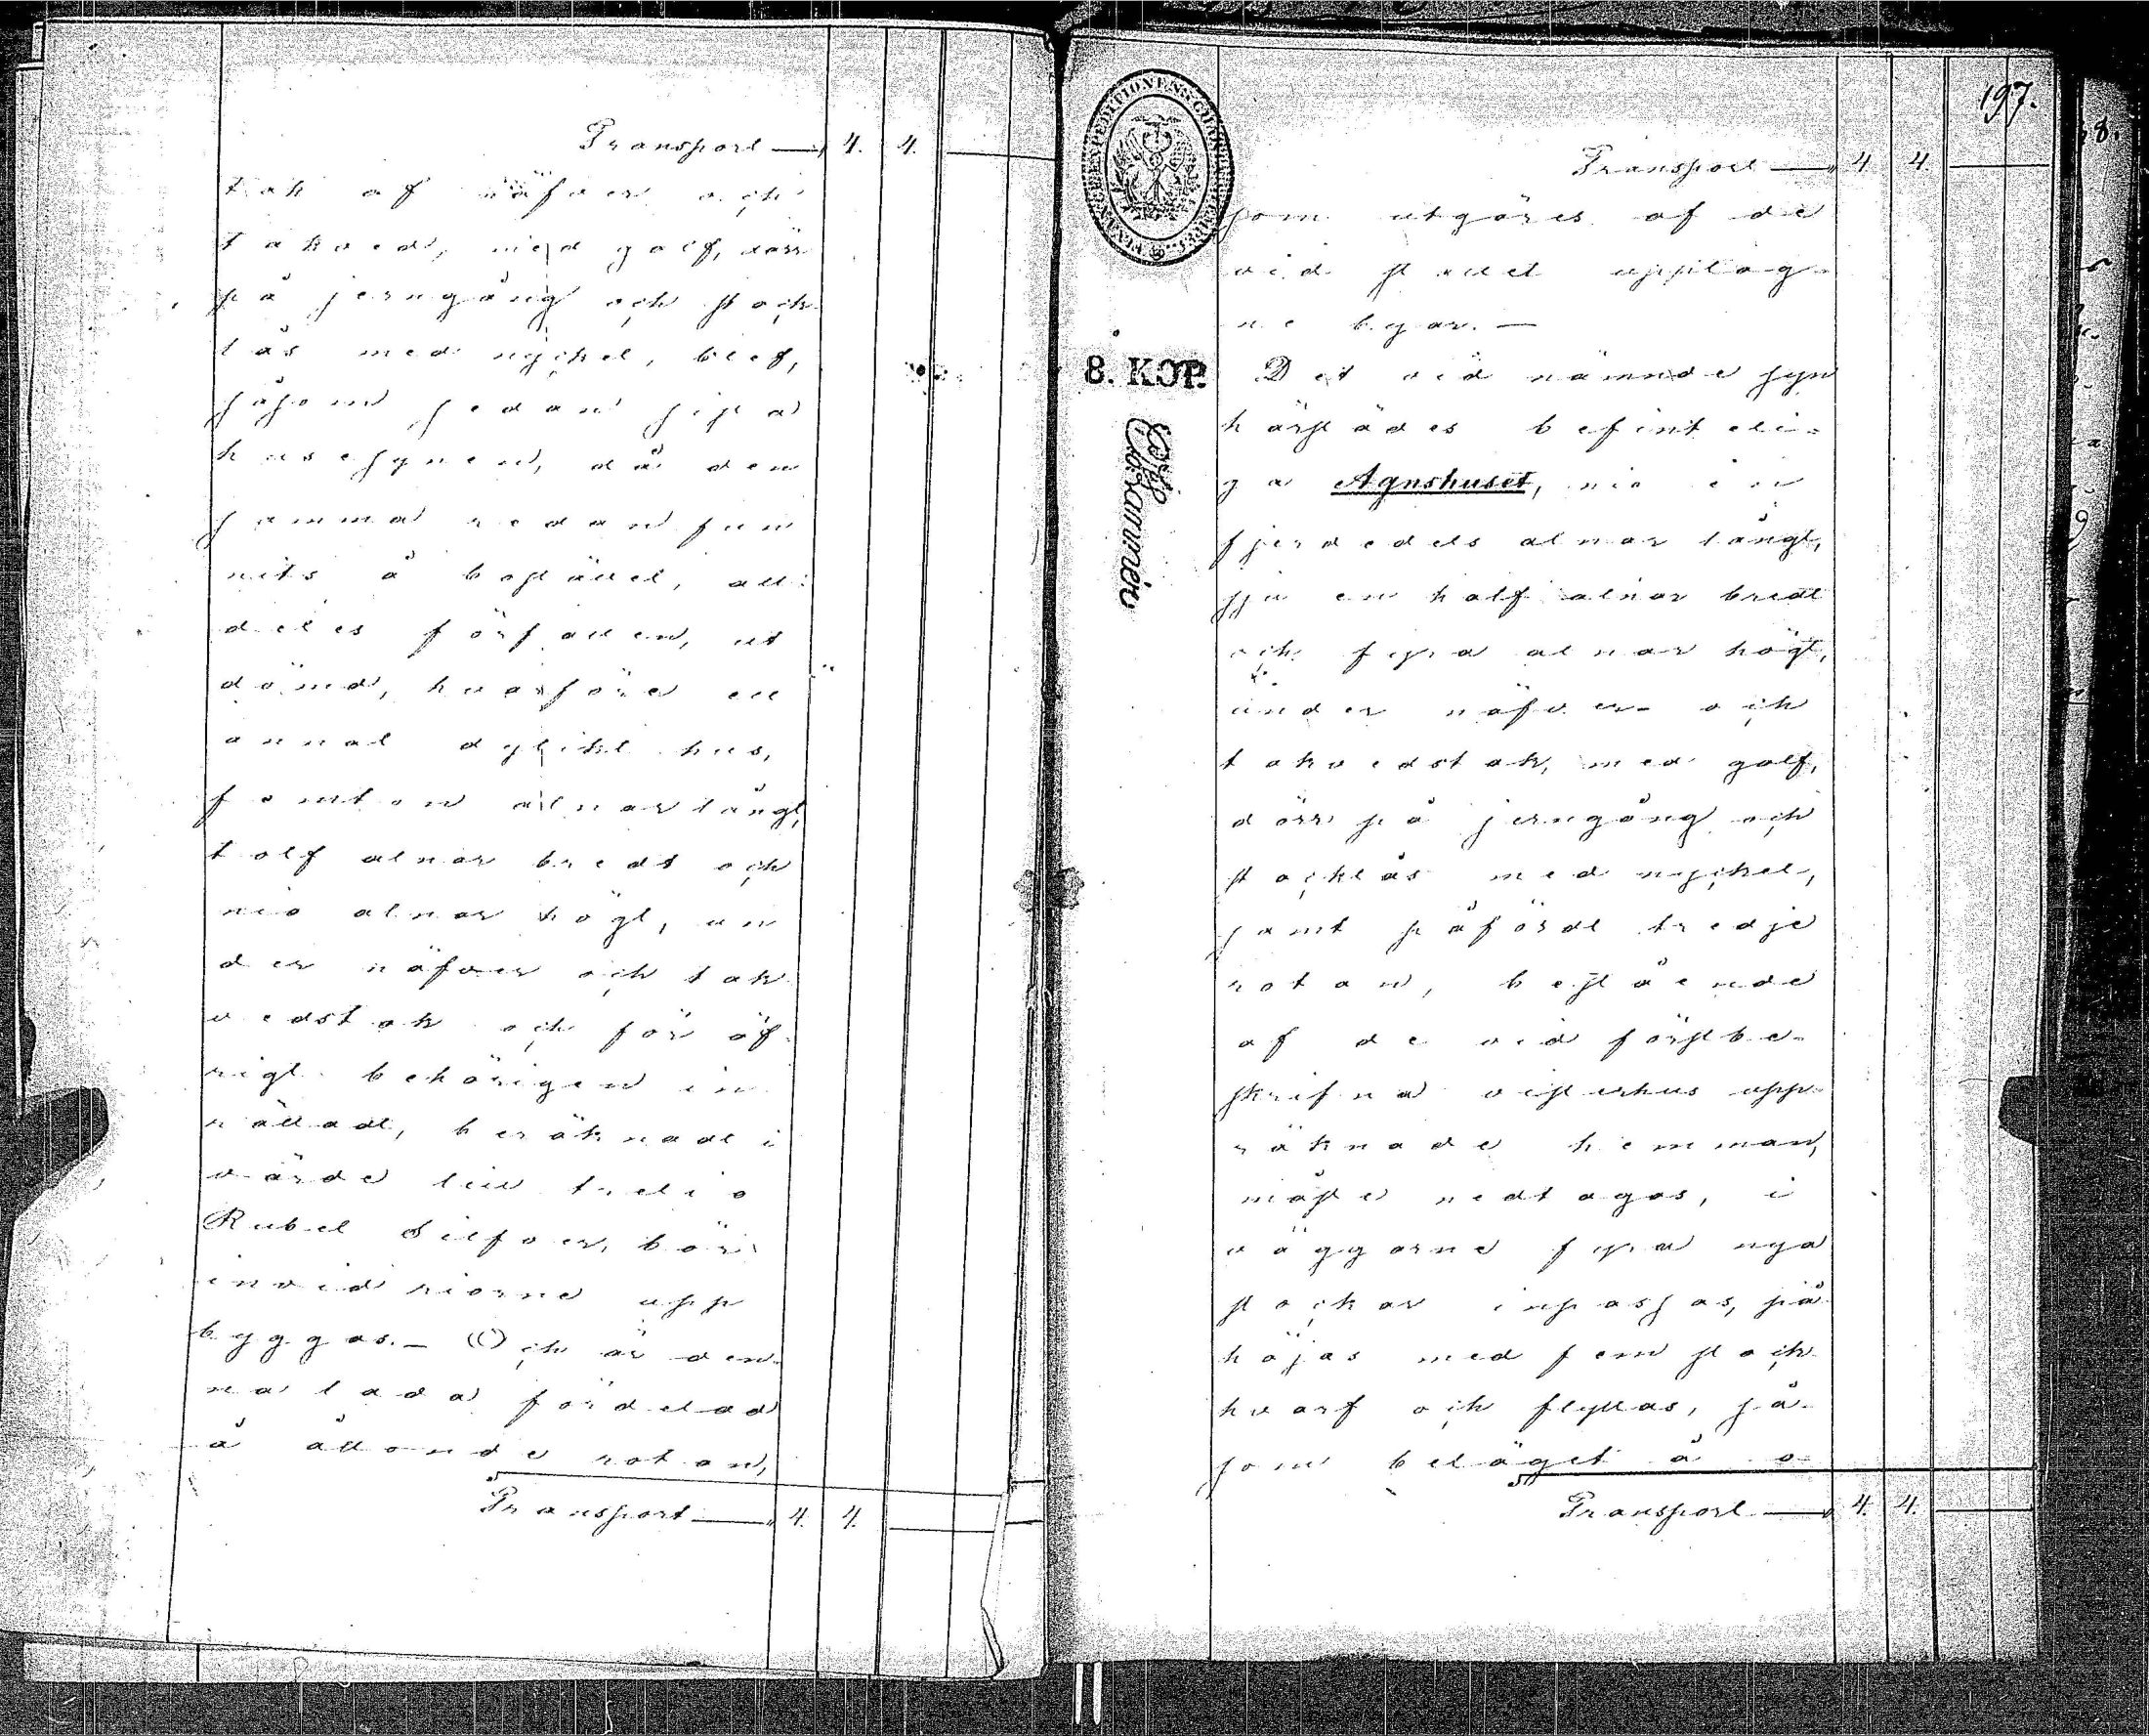 Transport — 4. 4. —
tak af näfver och
takved, med golf, dörr
på jerngång och stock
lås med nyckel, blef,
såsom sedan sista
husesynen, då den
samma redan fun
nits å bostället, all
deles förfallen, ut
dömd, hvarföre ett
annat dylikt hus,
femton alnar långt,
tolf alnar bredt och
nio alnar högt, un
der näfver och tak
vedstak och för öf
rigt behörigen in
rättadt, beräknadt i
värde till tretio
Rubel Silfver, bör
invid riorne upp
byggas. — Och är den
na lada fördelad
å åttonde rotan,
Transport — 4. 4. —
197.
Transport — 4 4. —
som utgöres af de
vid stallet upptag-
ne byar. —
8. KOP.
Det vid nämnde syn
härstädes befinteli-
ga Agnshuset, nio en
fjerdedels alnar långt,
sju en half alnar bredt
och fyra alnar högt,
under näfver- och
takvedstak, med golf,
dörr på jerngång och
stocklås med nyckel,
samt påfördt tredje
rotan, bestående
af de vid förstbe-
skrifna visterhus upp-
räknade hemman,
måste nedtagas, i
väggarne fyra nya
stockar inpassas, på
höjas med fem stock
hvarf och flyttas, så-
som beläget å o-
Transport — 4. 4. —